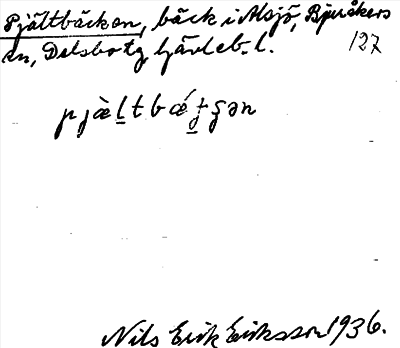 Pjältbäcken, bäck i Älsjö, Bjuråkers
sn, Delsbo tg Gävleb. l.
127
pjæ̀ltbǽtʂən
Nils Erik Eriksson 1936.